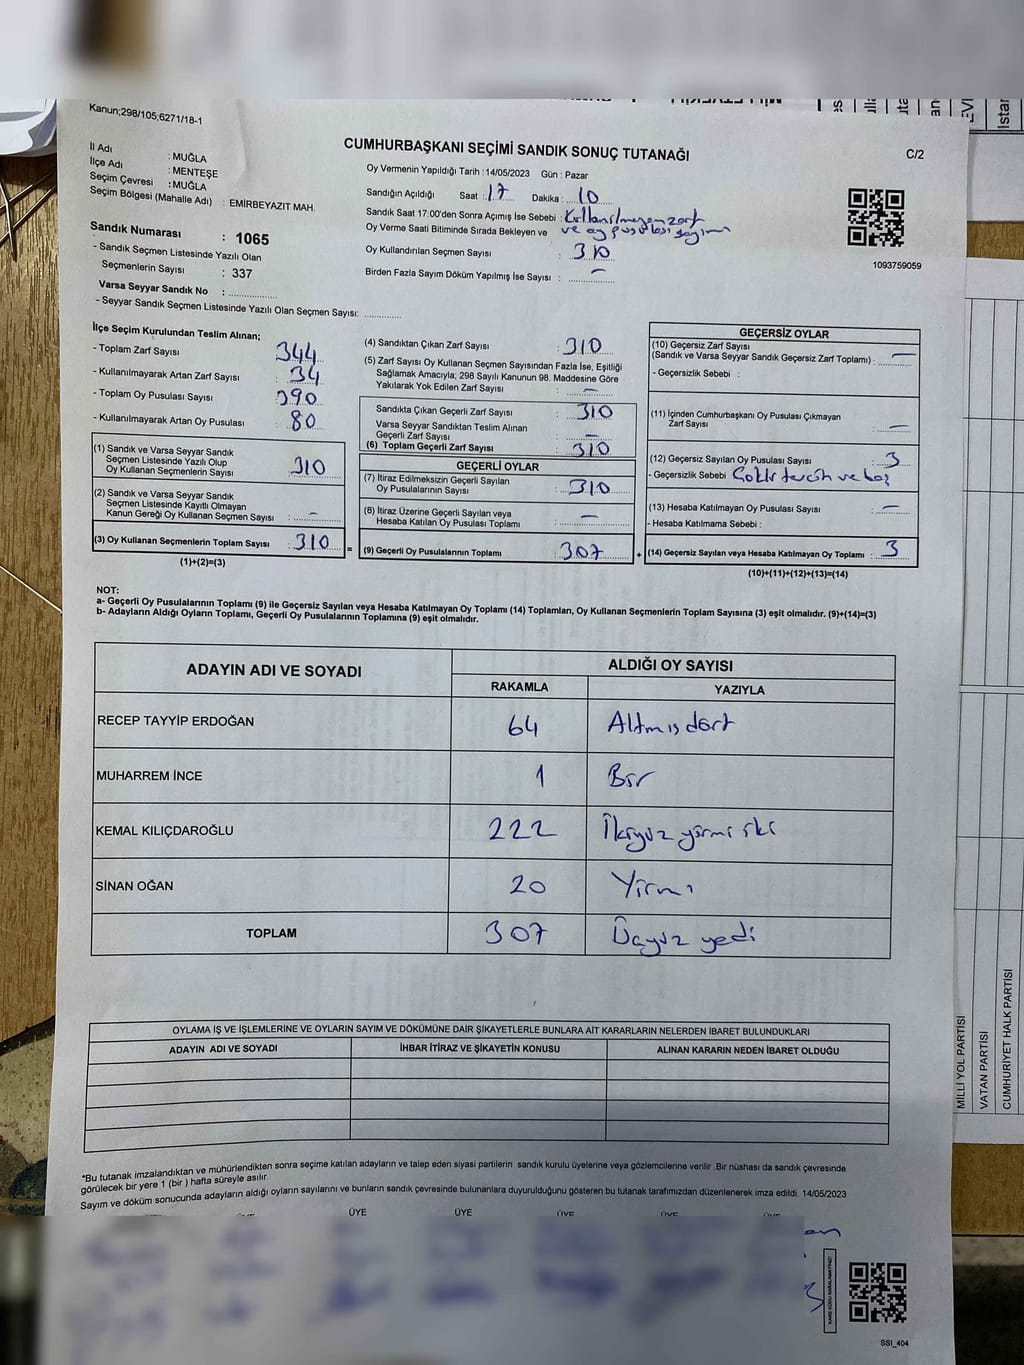 Kanun;298/105;6271/18-1
CUMHURBAŞKANI SEÇİMİ SANDIK SONUÇ TUTANAĞI
C/2
İl Adı : MUĞLA
İlçe Adı : MENTEŞE
Seçim Çevresi : MUĞLA
Seçim Bölgesi (Mahalle Adı) : EMİRBEYAZIT MAH.
Sandık Numarası : 1065
- Sandık Seçmen Listesinde Yazılı Olan
Seçmenlerin Sayısı : 337
Varsa Seyyar Sandık No :
- Seyyar Sandık Seçmen Listesinde Yazılı Olan Seçmen Sayısı:
Oy Vermenin Yapıldığı Tarih : 14/05/2023 Gün : Pazar
Sandığın Açıldığı Saat : 17 Dakika : 10
Sandık Saat 17:00'den Sonra Açımış İse Sebebi : Kullanılmayan zarf
Oy Verme Saati Bitiminde Sırada Bekleyen ve ve oy pusulası sayımı
Oy Kullandırılan Seçmen Sayısı : 310
Birden Fazla Sayım Döküm Yapılmış İse Sayısı : -
1093759059
İlçe Seçim Kurulundan Teslim Alınan;
- Toplam Zarf Sayısı : 344
- Kullanılmayarak Artan Zarf Sayısı : 34
- Toplam Oy Pusulası Sayısı : 390
- Kullanılmayarak Artan Oy Pusulası : 80
(1) Sandık ve Varsa Seyyar Sandık
Seçmen Listesinde Yazılı Olup
Oy Kullanan Seçmenlerin Sayısı : 310
(2) Sandık ve Varsa Seyyar Sandık
Seçmen Listesinde Kayıtlı Olmayan
Kanun Gereği Oy Kullanan Seçmen Sayısı : -
(3) Oy Kullanan Seçmenlerin Toplam Sayısı : 310
(1)+(2)=(3)
(4) Sandıktan Çıkan Zarf Sayısı : 310
(5) Zarf Sayısı Oy Kullanan Seçmen Sayısından Fazla İse, Eşitliği
Sağlamak Amacıyla, 298 Sayılı Kanunun 98. Maddesine Göre
Yakılarak Yok Edilen Zarf Sayısı : -
Sandıkta Çıkan Geçerli Zarf Sayısı : 310
Varsa Seyyar Sandıktan Teslim Alınan
Geçerli Zarf Sayısı : -
(6) Toplam Geçerli Zarf Sayısı : 310
GEÇERLİ OYLAR
(7) İtiraz Edilmeksizin Geçerli Sayılan
Oy Pusulalarının Sayısı : 310
(8) İtiraz Üzerine Geçerli Sayılan veya
Hesaba Katılan Oy Pusulası Toplamı : -
= (9) Geçerli Oy Pusulalarının Toplamı : 307 +
GEÇERSİZ OYLAR
(10) Geçersiz Zarf Sayısı
(Sandık ve Varsa Seyyar Sandık Geçersiz Zarf Toplamı) : -
- Geçersizlik Sebebi :
(11) İçinden Cumhurbaşkanı Oy Pusulası Çıkmayan
Zarf Sayısı : -
(12) Geçersiz Sayılan Oy Pusulası Sayısı : 3
- Geçersizlik Sebebi Çoklu tercih ve boş
(13) Hesaba Katılmayan Oy Pusulası Sayısı : -
- Hesaba Katılmama Sebebi :
(14) Geçersiz Sayılan veya Hesaba Katılmayan Oy Toplamı : 3
(10)+(11)+(12)+(13)=(14)
NOT:
a- Geçerli Oy Pusulalarının Toplamı (9) ile Geçersiz Sayılan veya Hesaba Katılmayan Oy Toplamı (14) Toplamları, Oy Kullanan Seçmenlerin Toplam Sayısına (3) eşit olmalıdır. (9)+(14)=(3)
b- Adayların Aldığı Oyların Toplamı, Geçerli Oy Pusulalarının Toplamına (9) eşit olmalıdır.
ADAYIN ADI VE SOYADI ALDIĞI OY SAYISI
RAKAMLA YAZIYLA
RECEP TAYYİP ERDOĞAN 64 Altmışdört
MUHARREM İNCE 1 Bir
KEMAL KILIÇDAROĞLU 222 İkiyüz yirmi iki
SİNAN OĞAN 20 Yirmi
TOPLAM 307 Üçyüz yedi
OYLAMA İŞ VE İŞLEMLERİNE VE OYLARIN SAYIM VE DÖKÜMÜNE DAİR ŞİKAYETLERLE BUNLARA AİT KARARLARIN NELERDEN İBARET BULUNDUKLARI
ADAYIN ADI VE SOYADI İHBAR İTİRAZ VE ŞİKAYETİN KONUSU ALINAN KARARIN NEDEN İBARET OLDUĞU
*Bu tutanak imzalandıktan ve mühürlendikten sonra seçime katılan adayların ve talep eden siyasi partilerin sandık kurulu üyelerine veya gözlemcilerine verilir .Bir nüshası da sandık çevresinde
görülecek bir yere 1 (bir ) hafta süreyle asılır.
Sayım ve döküm sonucunda adayların aldığı oyların sayılarını ve bunların sandık çevresinde bulunanlara duyurulduğunu gösteren bu tutanak tarafımızdan düzenlenerek imza edildi. 14/05/2023
ÜYE ÜYE ÜYE ÜYE ÜYE
SSI_404
MİLLİ YOL PARTİSİ
VATAN PARTİSİ
CUMHURİYET HALK PARTİSİ